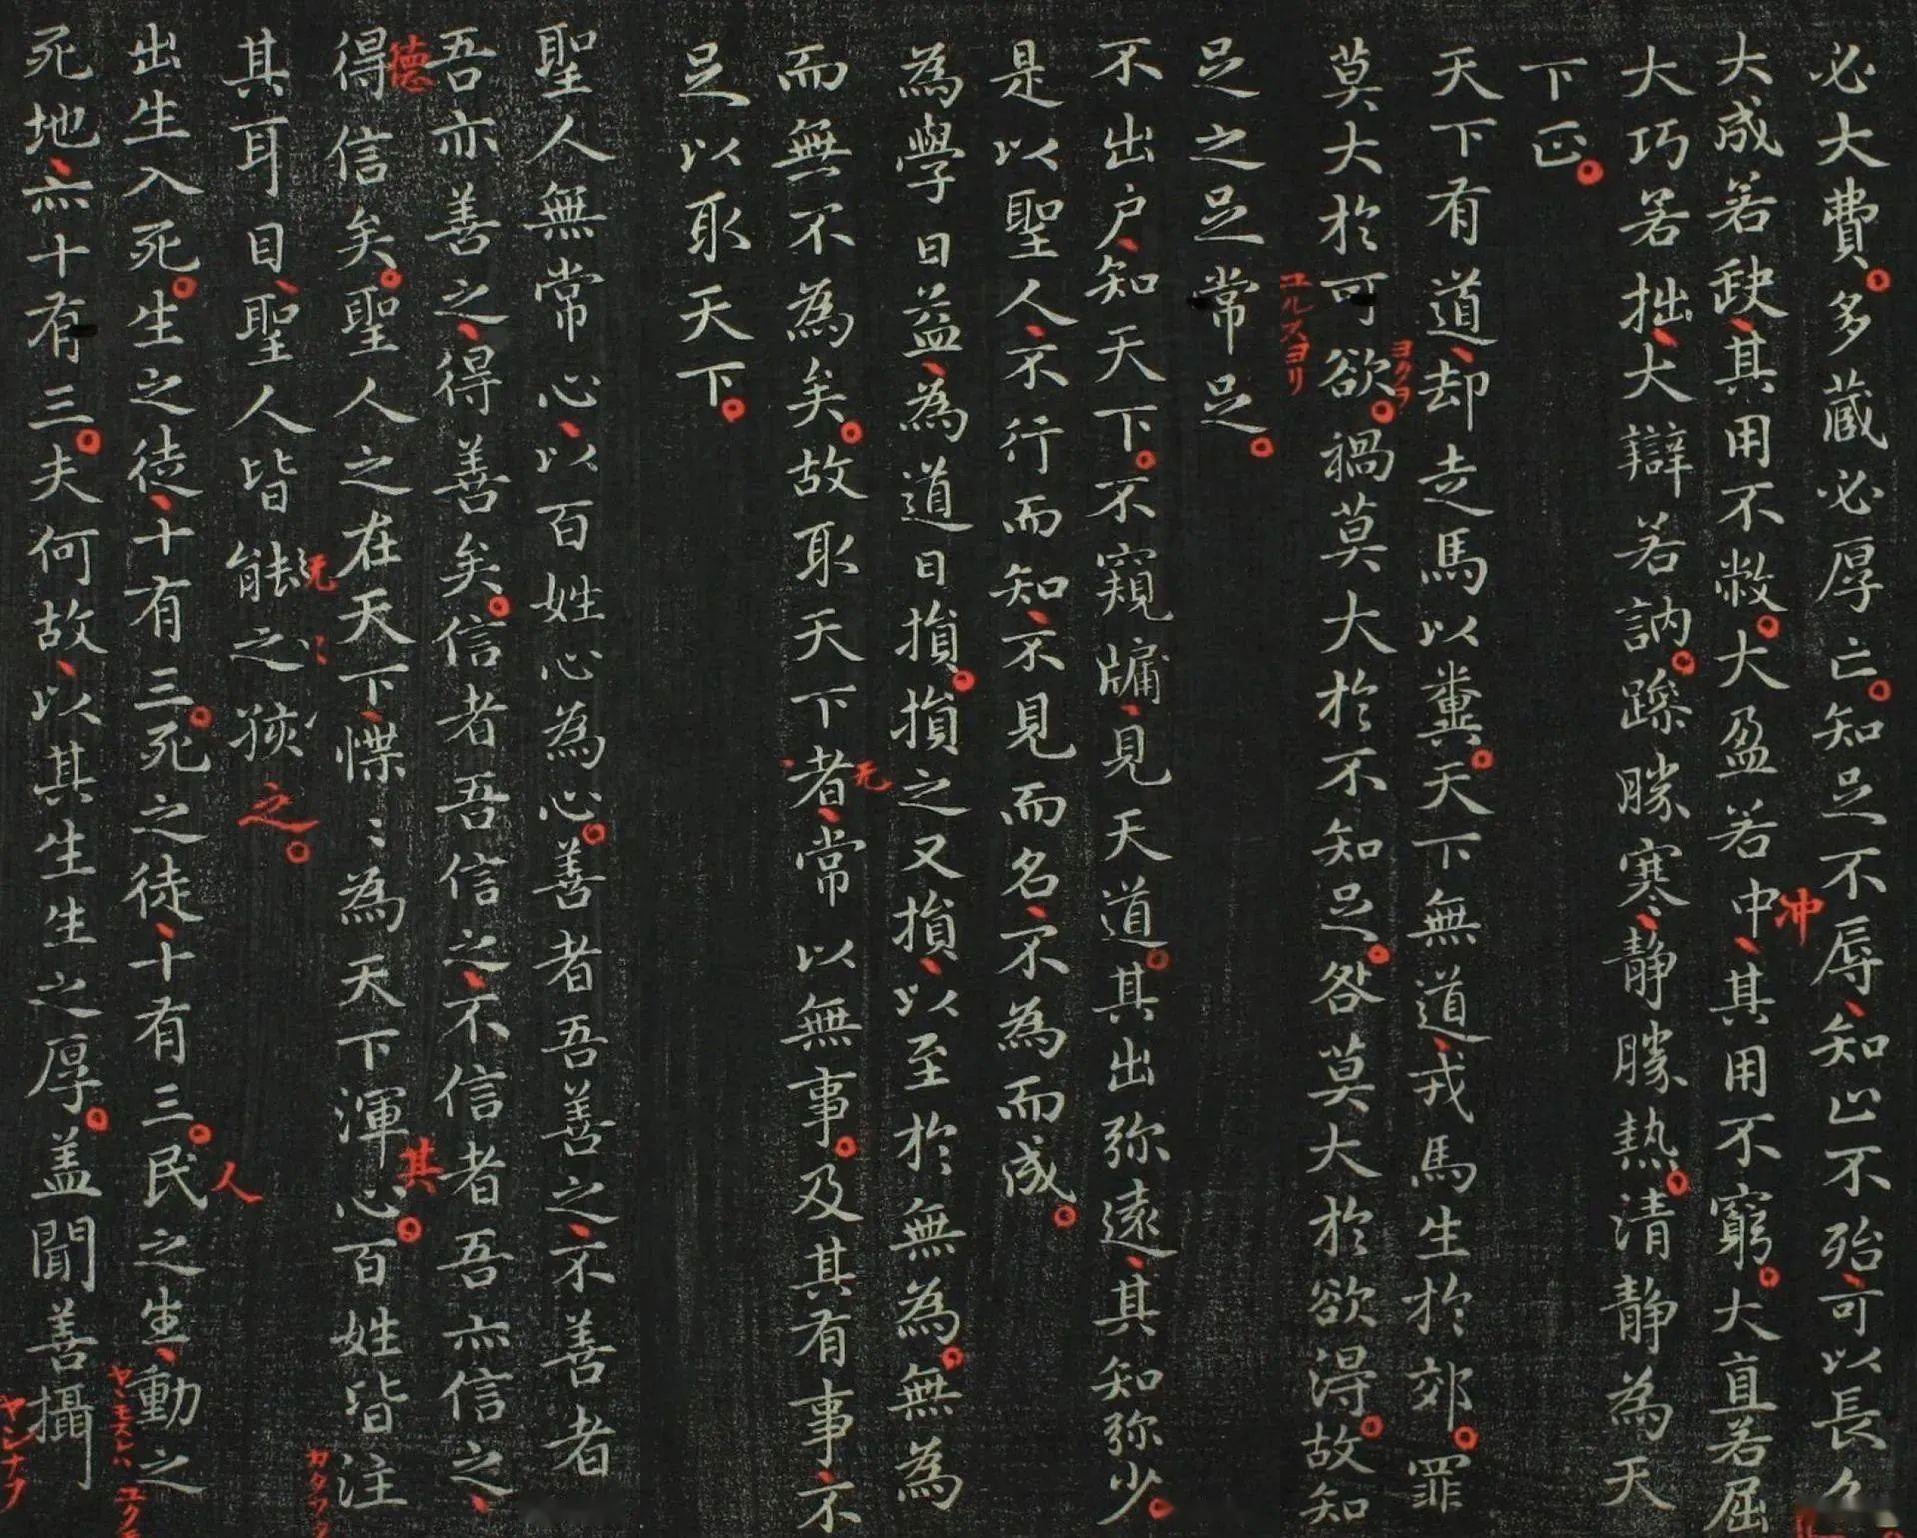 必大費。多蔵必厚亡。知足不辱、知止不殆、可以長久
大成若缺、其用不敝。大盈若中、其用不窮。大直若屈
冲
大巧若拙、大辯若訥。躁勝寒、静勝熱。清静為天
下正。
天下有道、却走馬以糞。天下無道、戎馬生於郊。罪
莫大於可欲。禍莫大於不知足。咎莫大於欲得。故知
ヨクヲ
ユルスヨリ
足之足常足。
不出户、知天下。不窺牖、見天道。其出弥遠、其知弥少。
是以聖人、不行而知、不見而名、不為而成。
為學日益、為道日損。損之又損、以至於無為。無為
而無不為矣。故取天下者、常以無事。及其有事、不
无
足以取天下。
聖人無常心、以百姓心為心。善者吾善之、不善者
吾亦善之、得善矣。信者吾信之、不信者吾亦信之、
德
得信矣。聖人之在天下、惵〻為天下渾心。百姓皆注
其
其耳目、聖人皆能之孩
无
之。
カタフタ
出生入死。生之徒、十有三。死之徒、十有三。民之生、動之
人
死地、亦十有三。夫何故、以其生生之厚。盖聞善攝
ヤシナフ